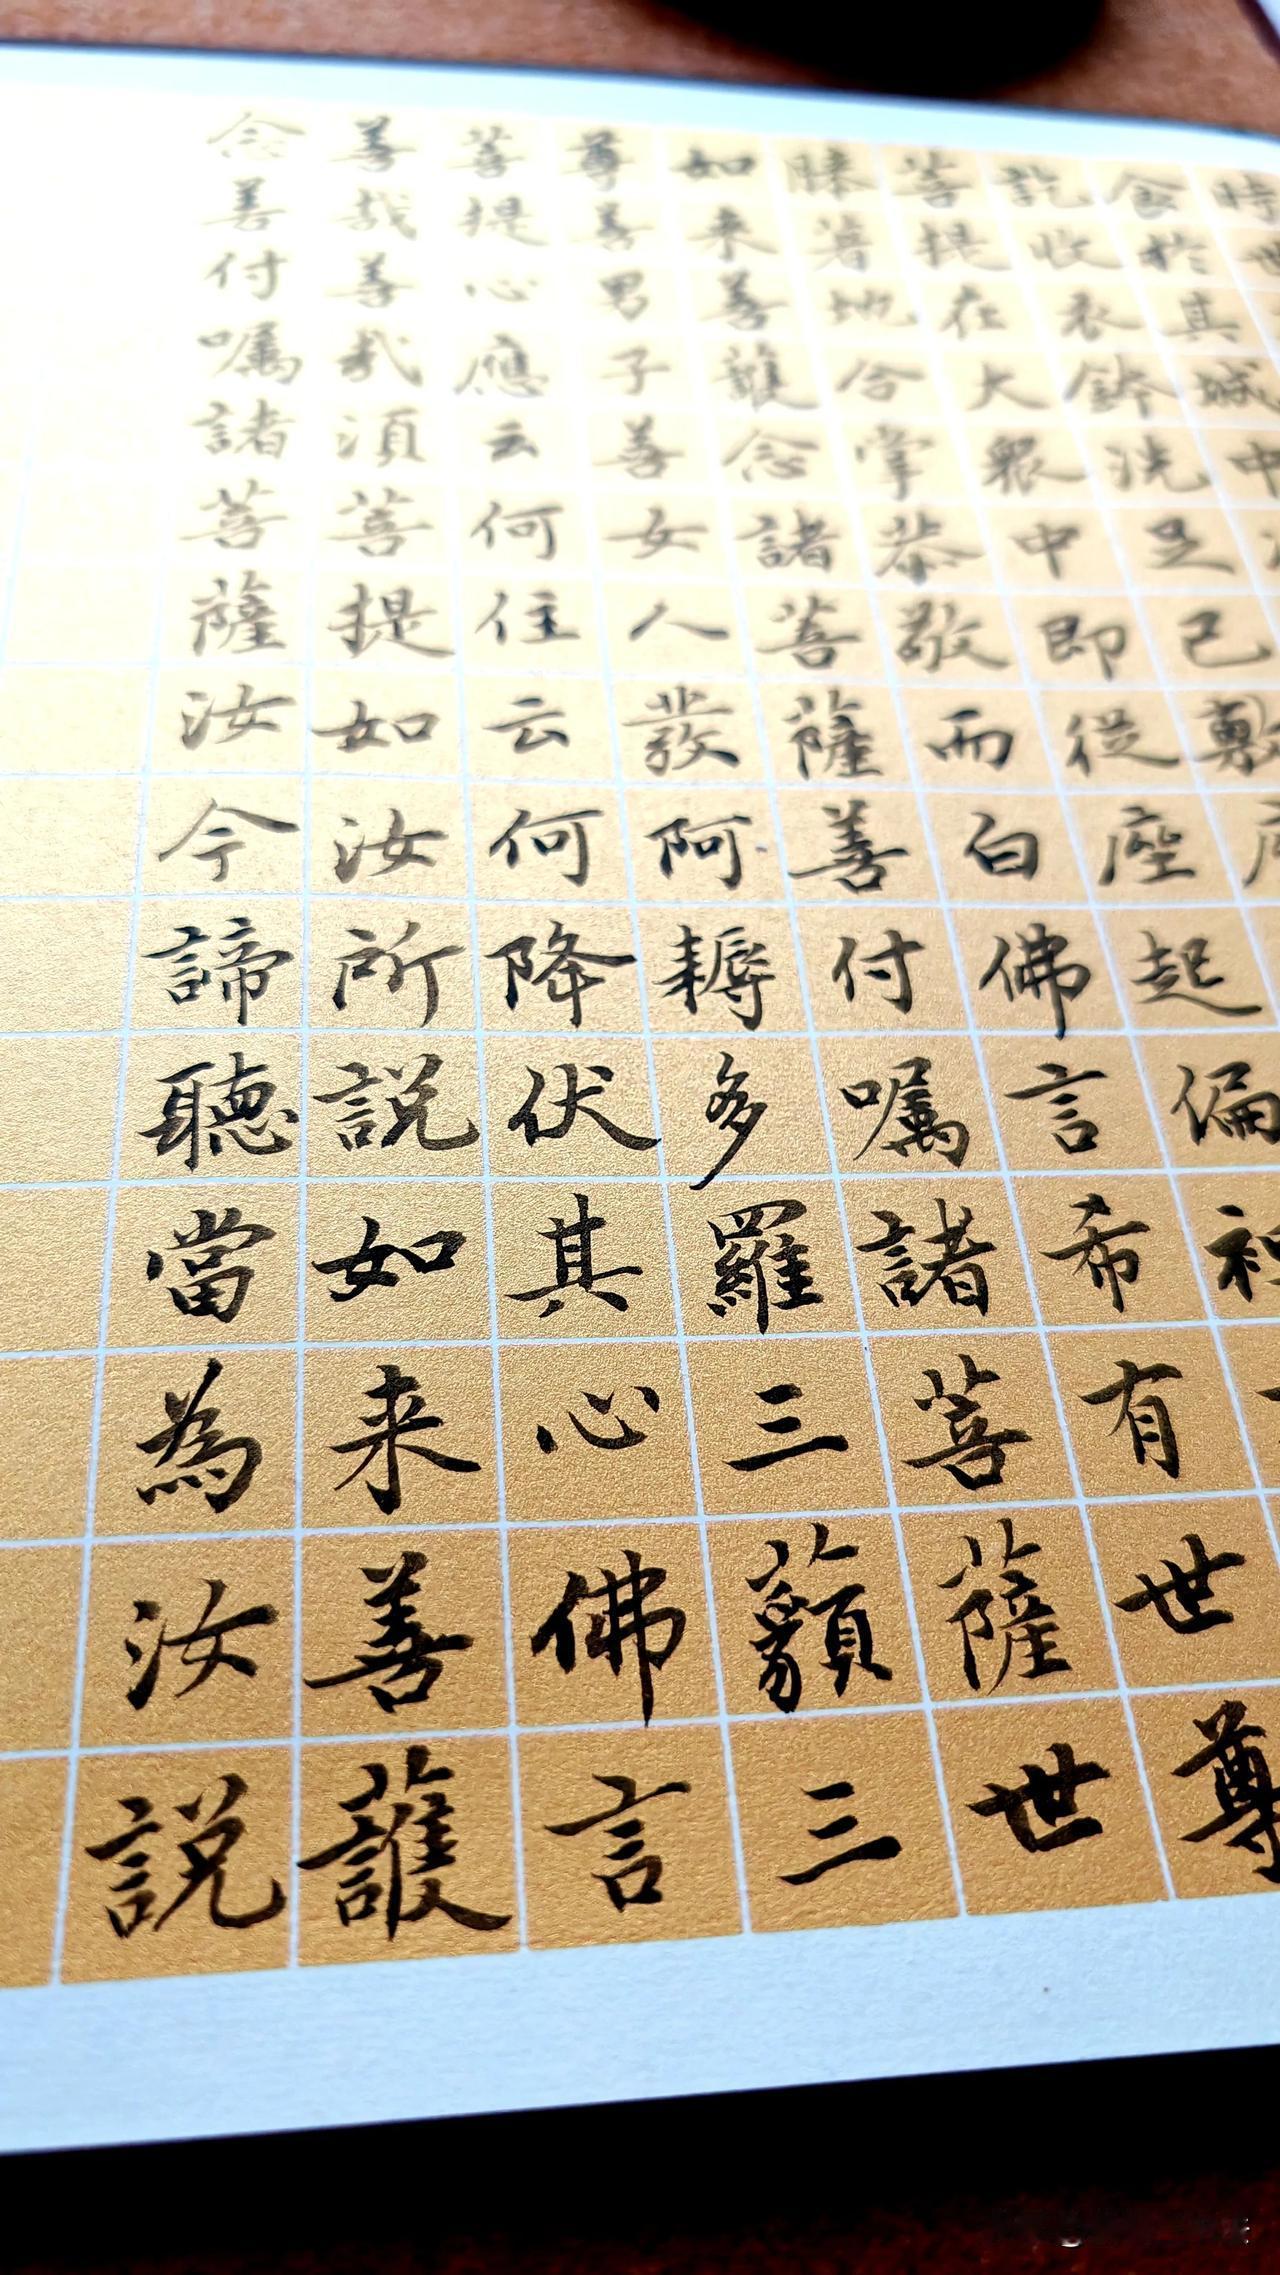 時世
食於其城中
訖收衣鉢洗足已敷
菩提在大眾中即從座起偏袒
膝著地合掌恭敬而白佛言希有世尊
如来善護念諸菩薩善付囑諸菩薩世
尊善男子善女人發阿耨多羅三藐三
菩提心應云何住云何降伏其心佛言
善哉善哉須菩提如汝所説如来善護
念善付囑諸菩薩汝今諦聽當為汝説